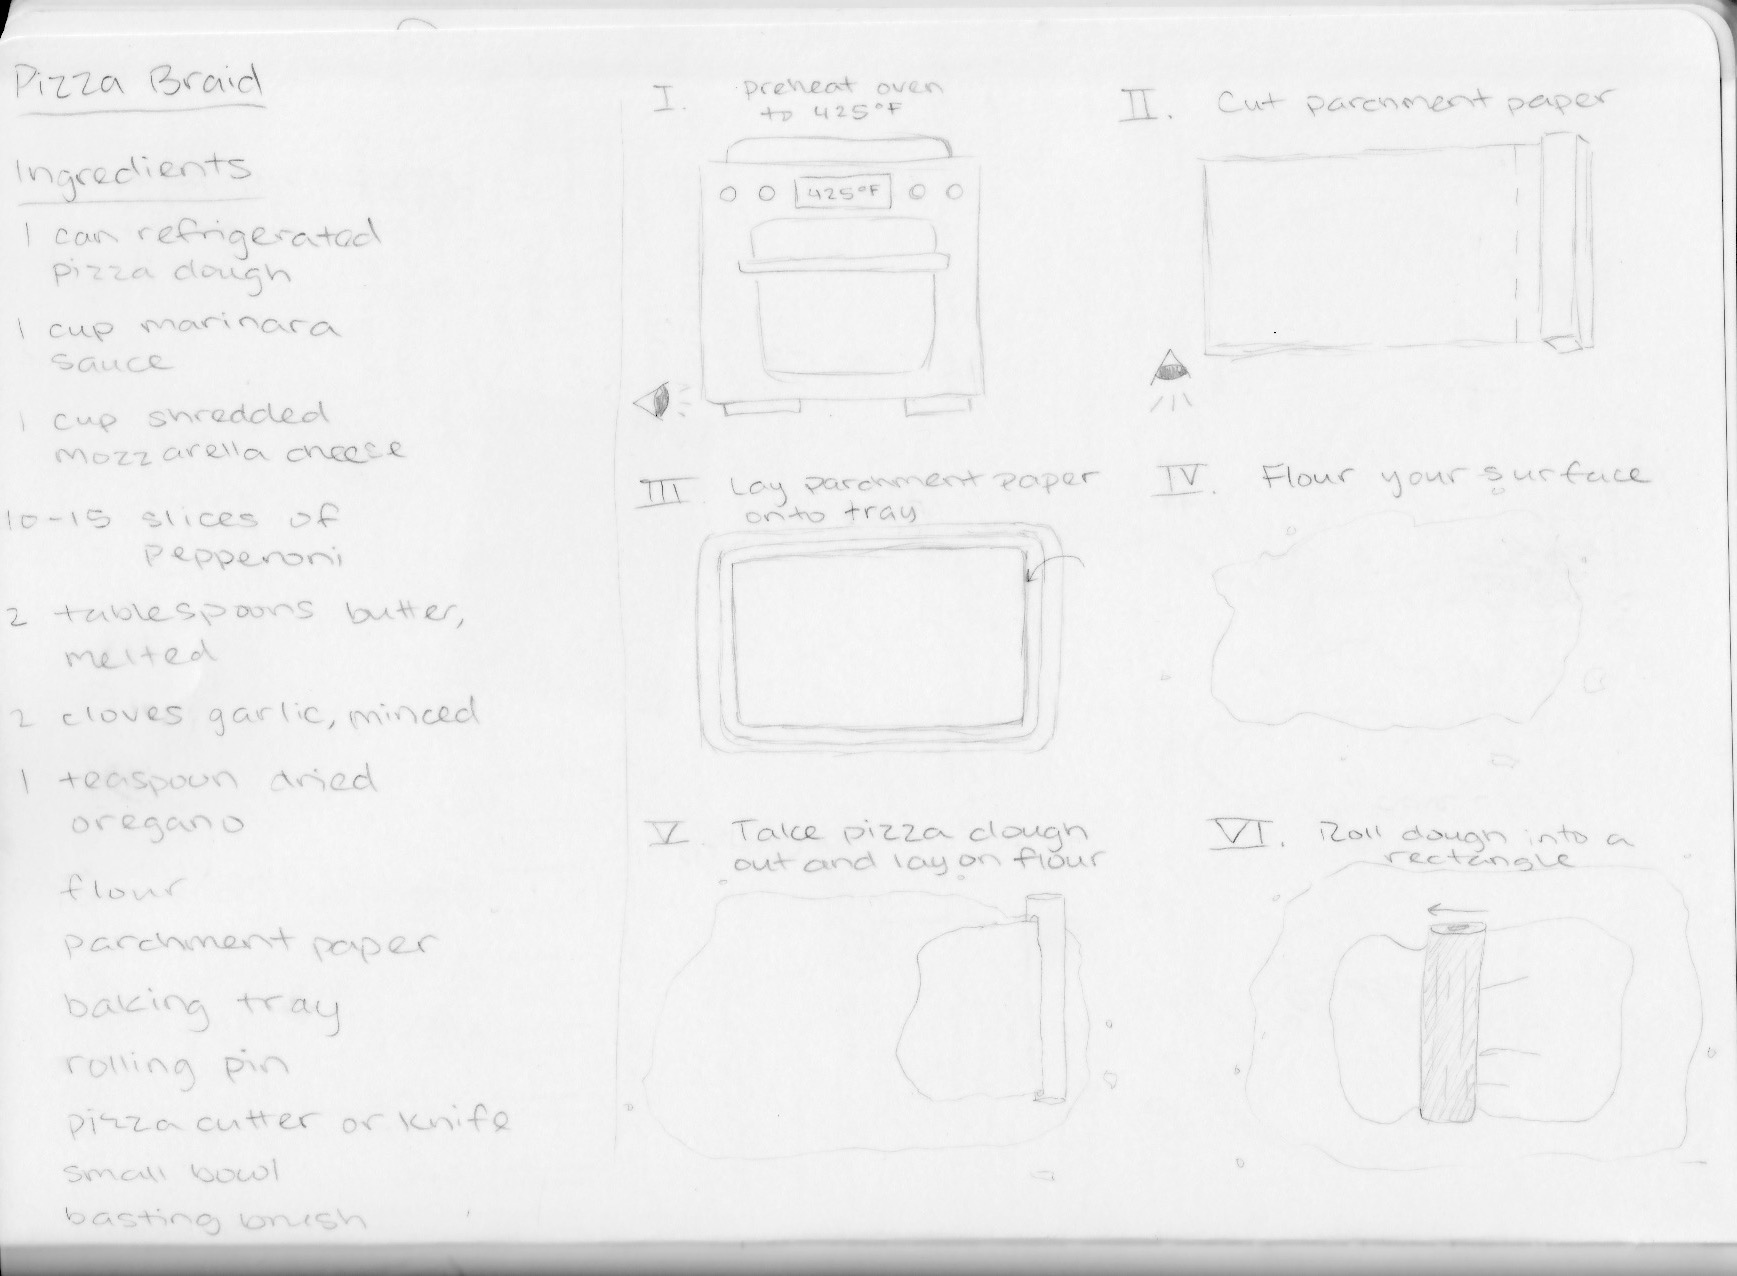 Pizza Braid
Ingredients
1 can refrigerated
pizza dough
1 cup marinara
sauce
1 cup shredded
mozzarella cheese
10-15 slices of
Pepperoni
2 tablespoons butter,
melted
2 cloves garlic, minced
1 teaspoon dried
oregano
flour
parchment paper
baking tray
rolling pin
pizza cutter or knife
small bowl
basting brush
I. preheat oven
to 425°F
425°F
II. Cut parchment paper
III Lay parchment paper
onto tray
IV. Flour your surface
V. Take pizza dough
out and lay on flour
VI. Roll dough into a
rectangle